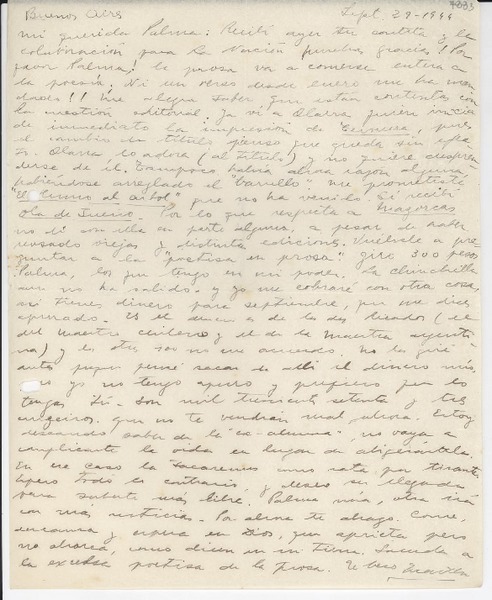 Buenos Aires Sept. 29-1944
Mi querida Palma: Recibí ayer tu cartita y la
colaboración para La Nación muchas gracias! Por
favor Palma! la prosa va a comerse entera a
la poesía. Ni un verso desde enero me has man
dado!! Me alegra saber que están contentas con
la cuestión editorial. Ya vi a Olarra quien inicia
de inmediato la impresión de Ternura, pues
el cambio de título pienso que queda sin efec
to. Olarra lo adora (al título) y no quiere despren
derse de él. Tampoco había ahora razón alguna
habiéndose arreglado el me prometiste
"El himno al árbol" que no ha venido. Sí recibí
Ola de Sueño. Por lo que respecta a Mazorcas
no di con ella en parte alguna, a pesar de haber
revisado viejas y distintas ediciones. Vuélvele a pre
guntar a la "poetisa en prosa" giré 300 pesos
Palma, los que tengo en mi poder. La chinchilla
aun no ha salido. y yo me cobraré con otra cosa,
así tienes dinero para septiembre, que me dices
apurado. Es el de los dos Recados (el
del Maestro chileno y el de la Maestra argenti
na) y los otros que no me acuerdo. No los giré
antes pues pensé sacar de allí el dinero mío,
pero yo no tengo apuro y prefiero que lo
tengas tú - son mil trescientos setenta y tres
cruzeiros. que no te vendrán mal, ahora. Estoy
deseando saber de la "ex-alumna", no vaya a
complicarte la vida en lugar de aligerártela.
En ese caso la sacaremos como rata por tirante
Espero todo lo contrario, y deseo su llegada
para saberte más libre. Palma mía, otra irá
con más noticias. Por ahora te abrazo. Come,
descansa y espera en Dios, que aprieta pero
no ahorca, como dicen en mi tierra. Saluda a
la excelsa poetisa de la prosa. Te besa